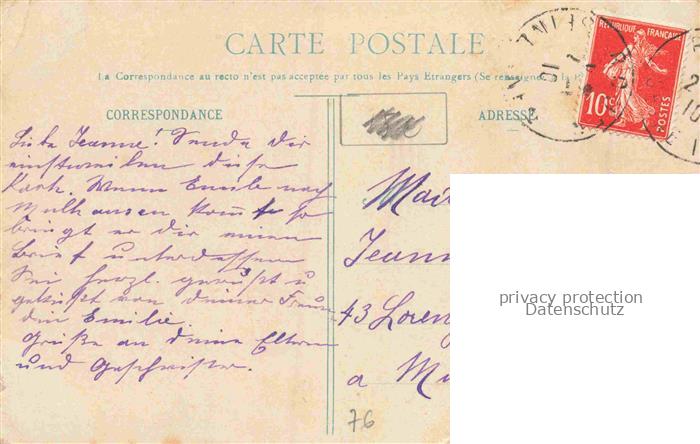 CARTE POSTALE
La Correspondance au recto n'est pas acceptée par tous les Pays Etrangers (Se renseigner à la P
CORRESPONDANCE
ADRESSE
REPUBLIQUE FRANÇAISE
10c
POSTES
Liebe Jeanne! Sende dir
einstweilen diese
Karte. Wenn Emile nach
Mülhausen kommt so
bringt er dir einen
Brief unterdessen
Sei herzl. gegrüßt u
geküßt von deiner Freun
din Emilie
Grüße an deine Eltern
und Geschwister.
Jeann
43 Loren
a M
76
privacy protection
Datenschutz